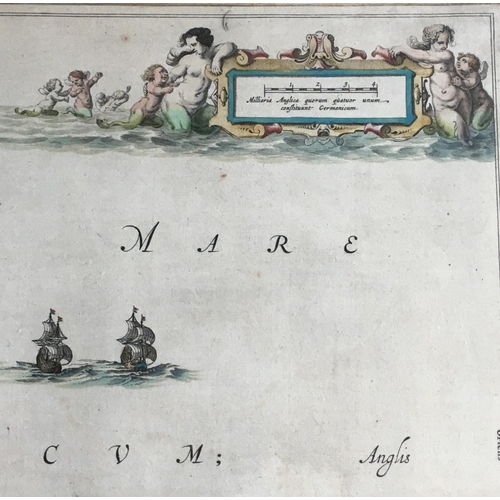 1 2 3 4
Milliaria Anglica quorum quatuor unum
constituunt Germanicum.
MARE
CVM; Anglis